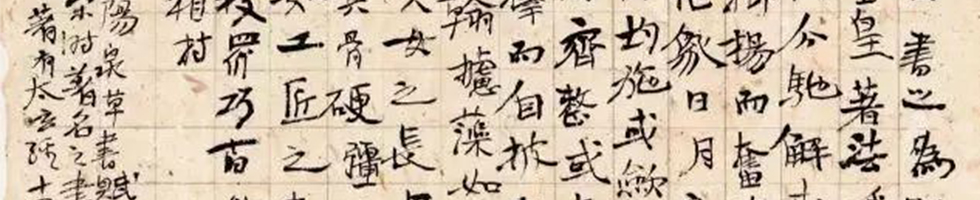 書之為
皇著法
分馳解
揚而奮
象日月
均施或歛
齊整或
而自披
翰攄藻如
女之長
骨硬彊
工匠之
衆巧百
相持
陽泉草書賦
時著名之書
著有太玄經十